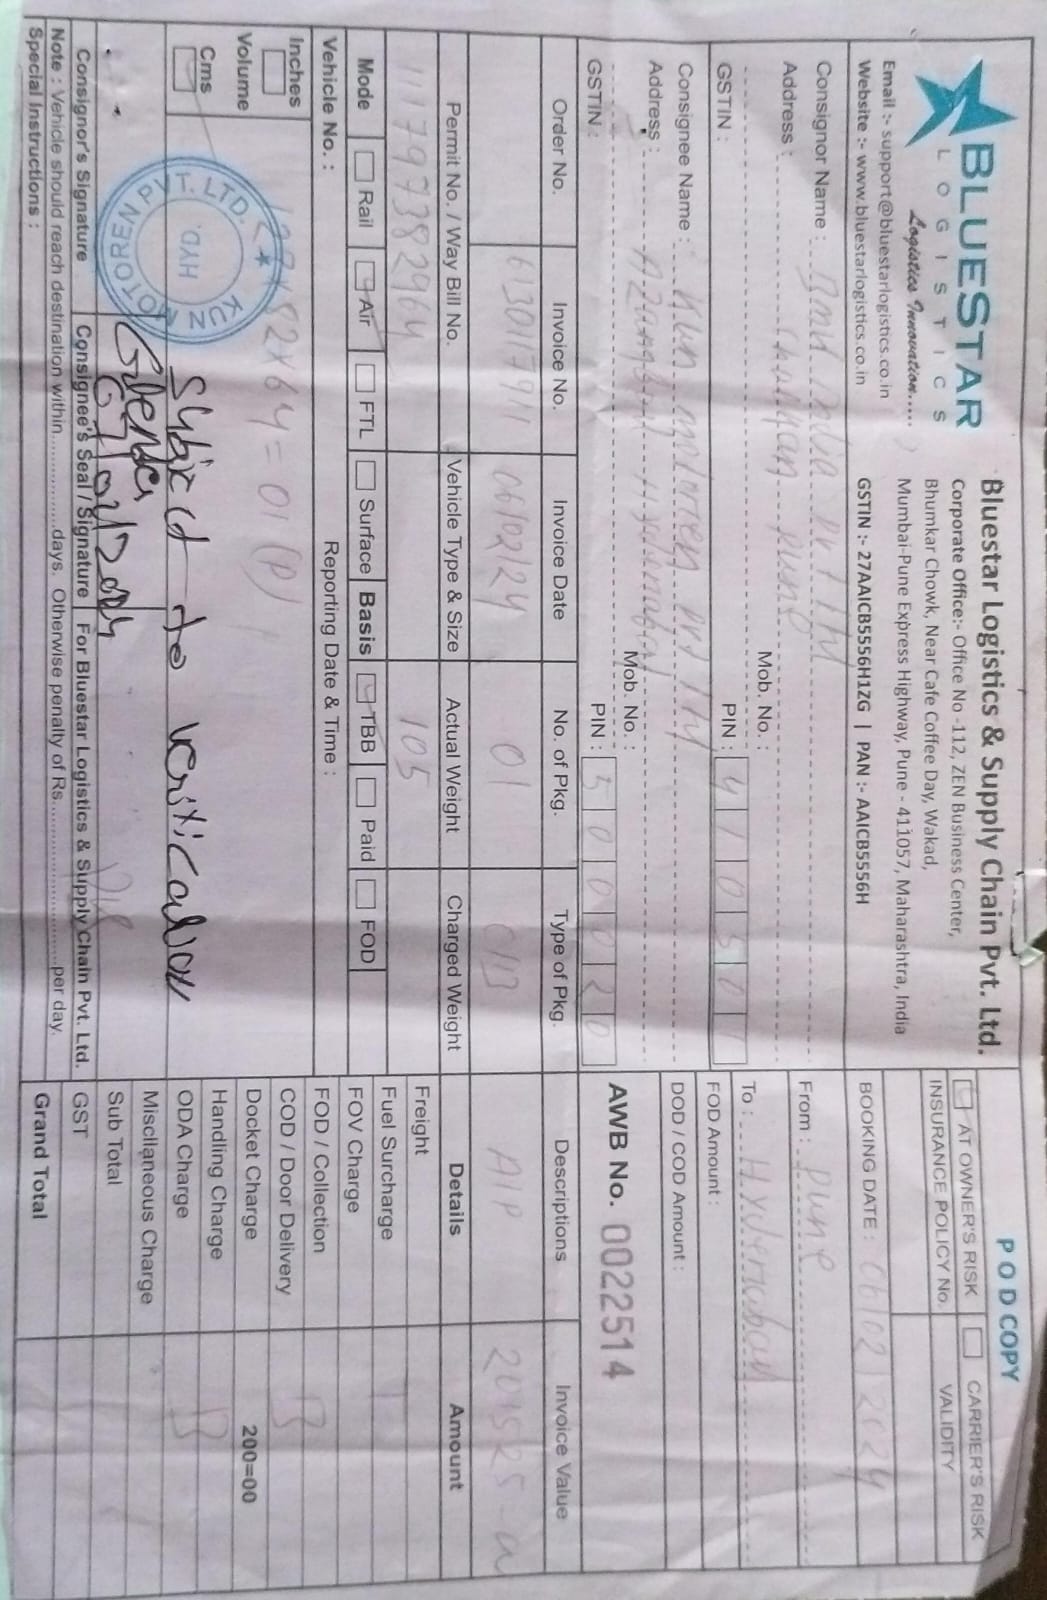 BLUESTAR
LOGISTICS
Logistics Innovation.....
Email :- support@bluestarlogistics.co.in
Website :- www.bluestarlogistics.co.in
Bluestar Logistics & Supply Chain Pvt. Ltd.
Corporate Office:- Office No -112, ZEN Business Center,
Bhumkar Chowk, Near Cafe Coffee Day, Wakad,
Mumbai-Pune Express Highway, Pune - 411057, Maharashtra, India
GSTIN :- 27AAICB5556H1ZG | PAN :- AAICB5556H
POD COPY
AT OWNER'S RISK CARRIER'S RISK
INSURANCE POLICY No. VALIDITY
BOOKING DATE : 06/02/2024
Consignor Name : India Pvt Ltd
Address : Chakan Pune
Mob. No. :
GSTIN : PIN : 410501
From : Pune
To : Hyderabad
FOD Amount :
DOD / COD Amount :
Consignee Name : Kun motoren Pvt Ltd
Address : Hyderabad
Mob. No. :
GSTIN : PIN : 500020
AWB No. 0022514
Order No. Invoice No. Invoice Date No. of Pkg. Type of Pkg. Descriptions Invoice Value
6130117911 06/02/24 01 A/P
Permit No. / Way Bill No. Vehicle Type & Size Actual Weight Charged Weight Details Amount
111797382964 105
Freight
Fuel Surcharge
Mode Rail Air FTL Surface Basis TBB Paid FOD
FOV Charge
Vehicle No. : Reporting Date & Time :
FOD / Collection
Inches
COD / Door Delivery
x82x64=01(P)
Volume
Docket Charge 200=00
Cms
Handling Charge
KUN MOTOREN PVT. LTD.
HYD.
Subject to verification
ODA Charge
Miscllaneous Charge
07/02/2024
Sub Total
Consignor's Signature Consignee's Seal / Signature For Bluestar Logistics & Supply Chain Pvt. Ltd.
GST
Note : Vehicle should reach destination within.................days. Otherwise penalty of Rs..............................per day.
Grand Total
Special Instructions :